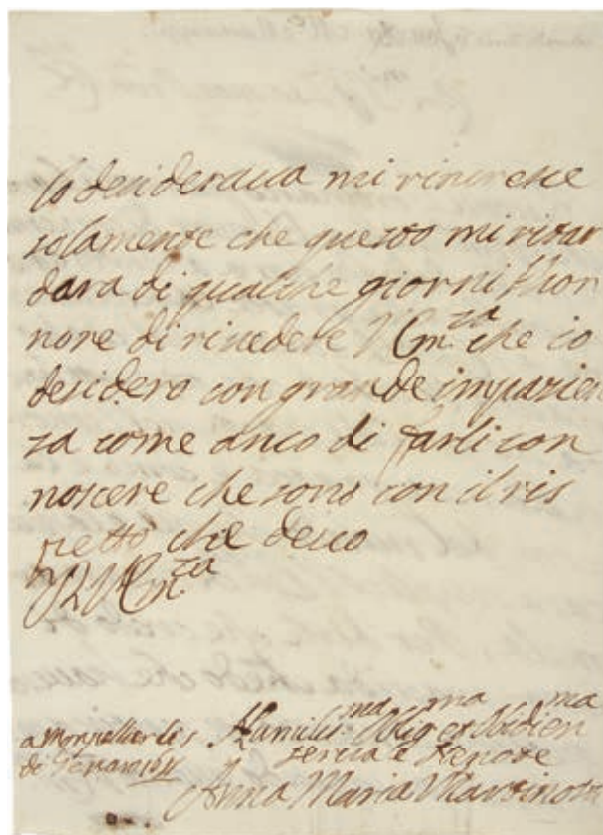 lo desideraua mi rincresce
solamente che questo mi ritar
dara di qualche giorni l'hon
nore di riuedere V Em.za che io
desidero con grande impazien
za come anco di farli con
noscere che sono con il ris
petto che deuo
Di V Em.za
a Monpellier li
de Genaro
Humilis.ma Oblig.ma et Obidien.ma
serua e
Anna Maria Martinozzi